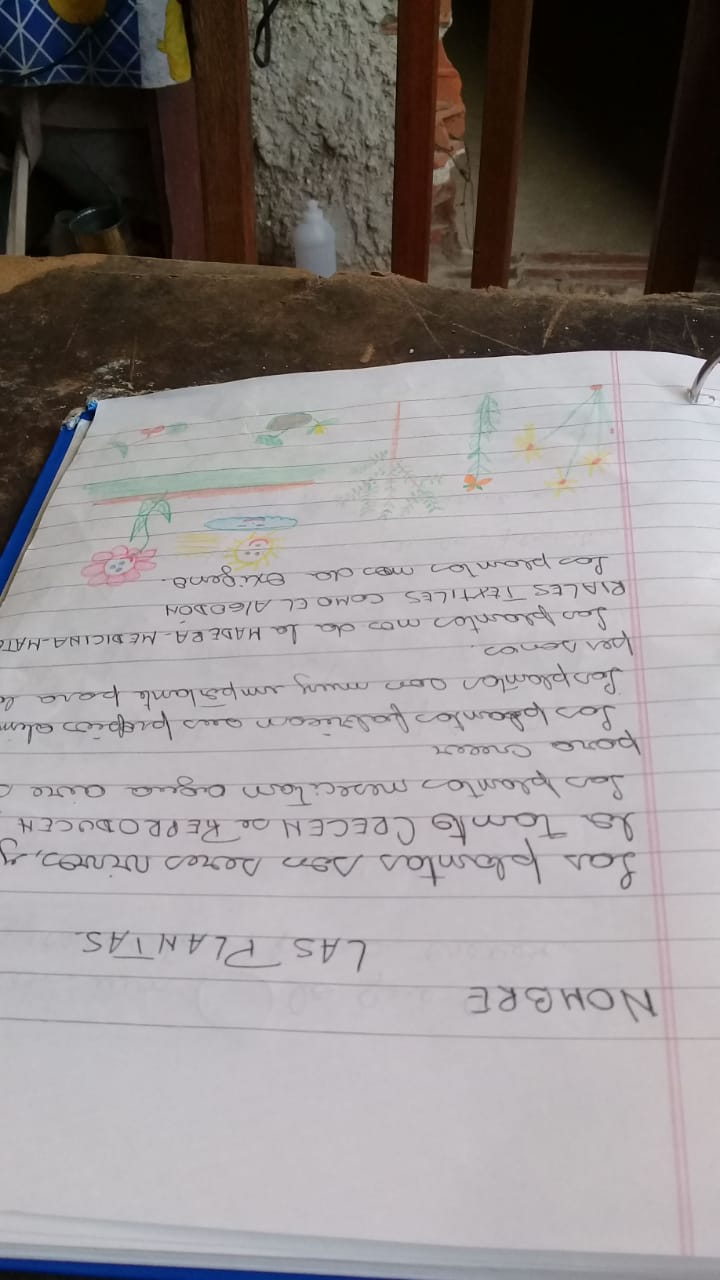 NOMBRE
LAS PLANTAS
Las plantas son seres vivos,
lo tanto CRECEN se REPRODUCEN
Las plantas nesecitam agua aire
para crecer
Las plantas fabrican sus propios
Las plantas son muy importante para
personas.
Las plantas mos da la MADERA-MEDICINA-MATE
RIALES TEXTILES COMO EL AlGODÓN
Las plantas mos da Oxigeno.